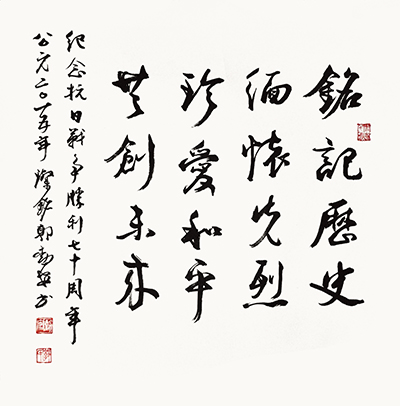 銘記歷史
緬懷先烈
珍愛和平
共創未來
紀念抗日戰爭勝利七十周年
公元二〇一五年